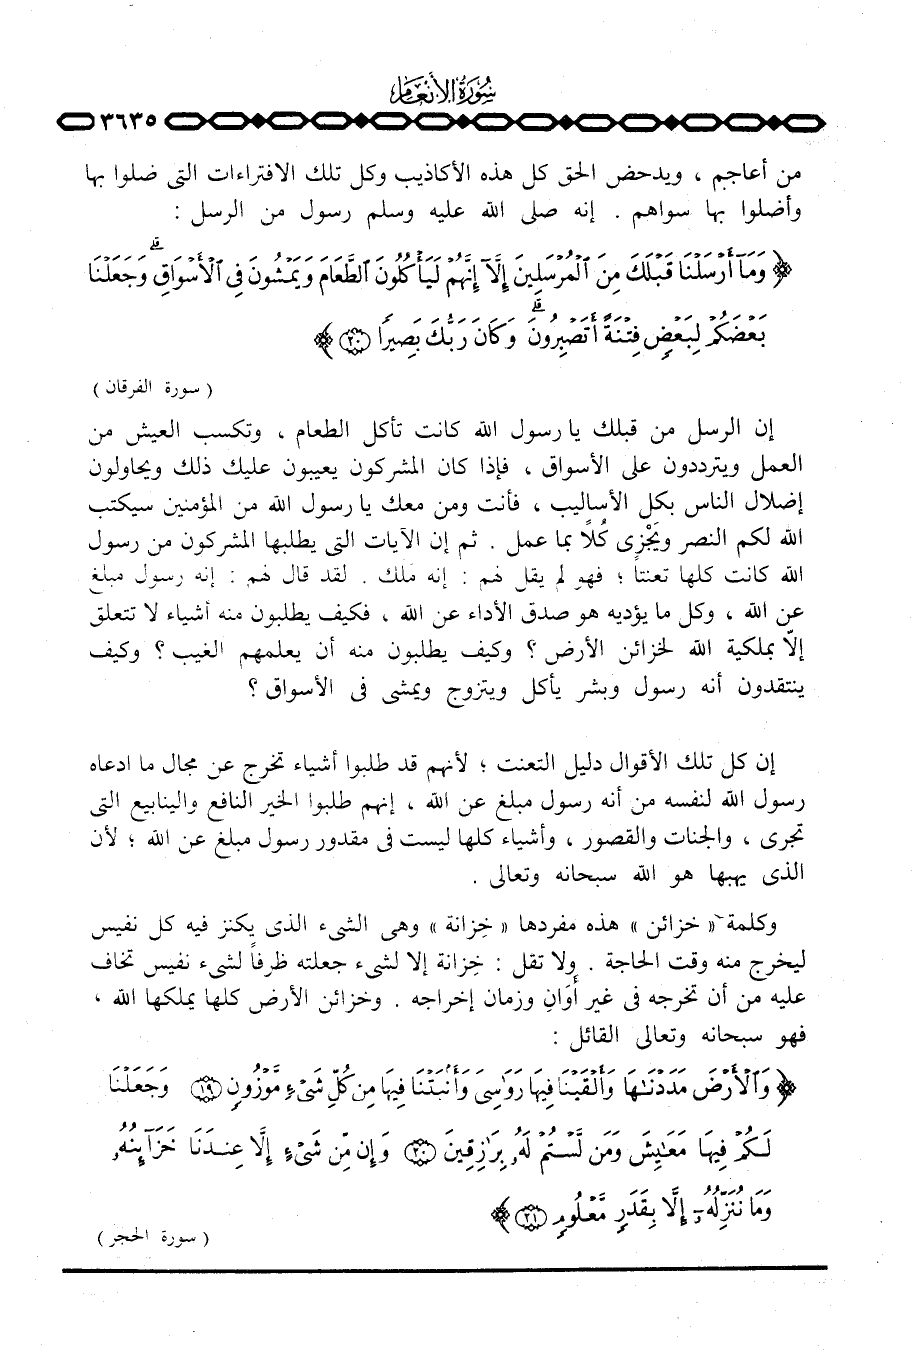 سُورَةُ الأَنْعَام
٣٦٣٥
من أعاجم ، ويدحض الحق كل هذه الأكاذيب وكل تلك الافتراءات التى ضلوا بها
وأضلوا بها سواهم . إنه صلى الله عليه وسلم رسول من الرسل :
﴿ وَمَآ أَرْسَلْنَا قَبْلَكَ مِنَ ٱلْمُرْسَلِينَ إِلَّآ إِنَّهُمْ لَيَأْكُلُونَ ٱلطَّعَامَ وَيَمْشُونَ فِى ٱلْأَسْوَاقِ ۗ وَجَعَلْنَا
بَعْضَكُمْ لِبَعْضٍ فِتْنَةً أَتَصْبِرُونَ ۗ وَكَانَ رَبُّكَ بَصِيرًا ﴿٢٠﴾ ﴾
( سورة الفرقان )
إن الرسل من قبلك يا رسول الله كانت تأكل الطعام ، وتكسب العيش من
العمل ويترددون على الأسواق ، فإذا كان المشركون يعيبون عليك ذلك ويحاولون
إضلال الناس بكل الأساليب ، فأنت ومن معك يا رسول الله من المؤمنين سيكتب
الله لكم النصر ويَجْزِى كُلاً بما عمل . ثم إن الآيات التى يطلبها المشركون من رسول
الله كانت كلها تعنتاً ؛ فهو لم يقل لهم : إنه ملك . لقد قال لهم : إنه رسول مبلغ
عن الله ، وكل ما يؤديه هو صدق الأداء عن الله ، فكيف يطلبون منه أشياء لا تتعلق
إلاّ بملكية الله لخزائن الأرض ؟ وكيف يطلبون منه أن يعلمهم الغيب ؟ وكيف
ينتقدون أنه رسول وبشر يأكل ويتزوج ويمشى فى الأسواق ؟
إن كل تلك الأقوال دليل التعنت ؛ لأنهم قد طلبوا أشياء تخرج عن مجال ما ادعاه
رسول الله لنفسه من أنه رسول مبلغ عن الله ، إنهم طلبوا الخير النافع والينابيع التى
تجرى ، والجنات والقصور ، وأشياء كلها ليست فى مقدور رسول مبلغ عن الله ؛ لأن
الذى يهبها هو الله سبحانه وتعالى .
وكلمة « خزائن » هذه مفردها « خِزانة » وهى الشىء الذى يكنز فيه كل نفيس
ليخرج منه وقت الحاجة . ولا تقل : خِزانة إلا لشىء جعلته ظرفاً لشىء نفيس تخاف
عليه من أن تخرجه فى غير أَوَانِ وزمان إخراجه . وخزائن الأرض كلها يملكها الله ،
فهو سبحانه وتعالى القائل :
﴿ وَٱلْأَرْضَ مَدَدْنَٰهَا وَأَلْقَيْنَا فِيهَا رَوَٰسِىَ وَأَنۢبَتْنَا فِيهَا مِن كُلِّ شَىْءٍ مَّوْزُونٍ ﴿١٩﴾ وَجَعَلْنَا
لَكُمْ فِيهَا مَعَٰيِشَ وَمَن لَّسْتُمْ لَهُۥ بِرَٰزِقِينَ ﴿٢٠﴾ وَإِن مِّن شَىْءٍ إِلَّا عِندَنَا خَزَآئِنُهُۥ
وَمَا نُنَزِّلُهُۥٓ إِلَّا بِقَدَرٍ مَّعْلُومٍ ﴿٢١﴾ ﴾
( سورة الحجر )